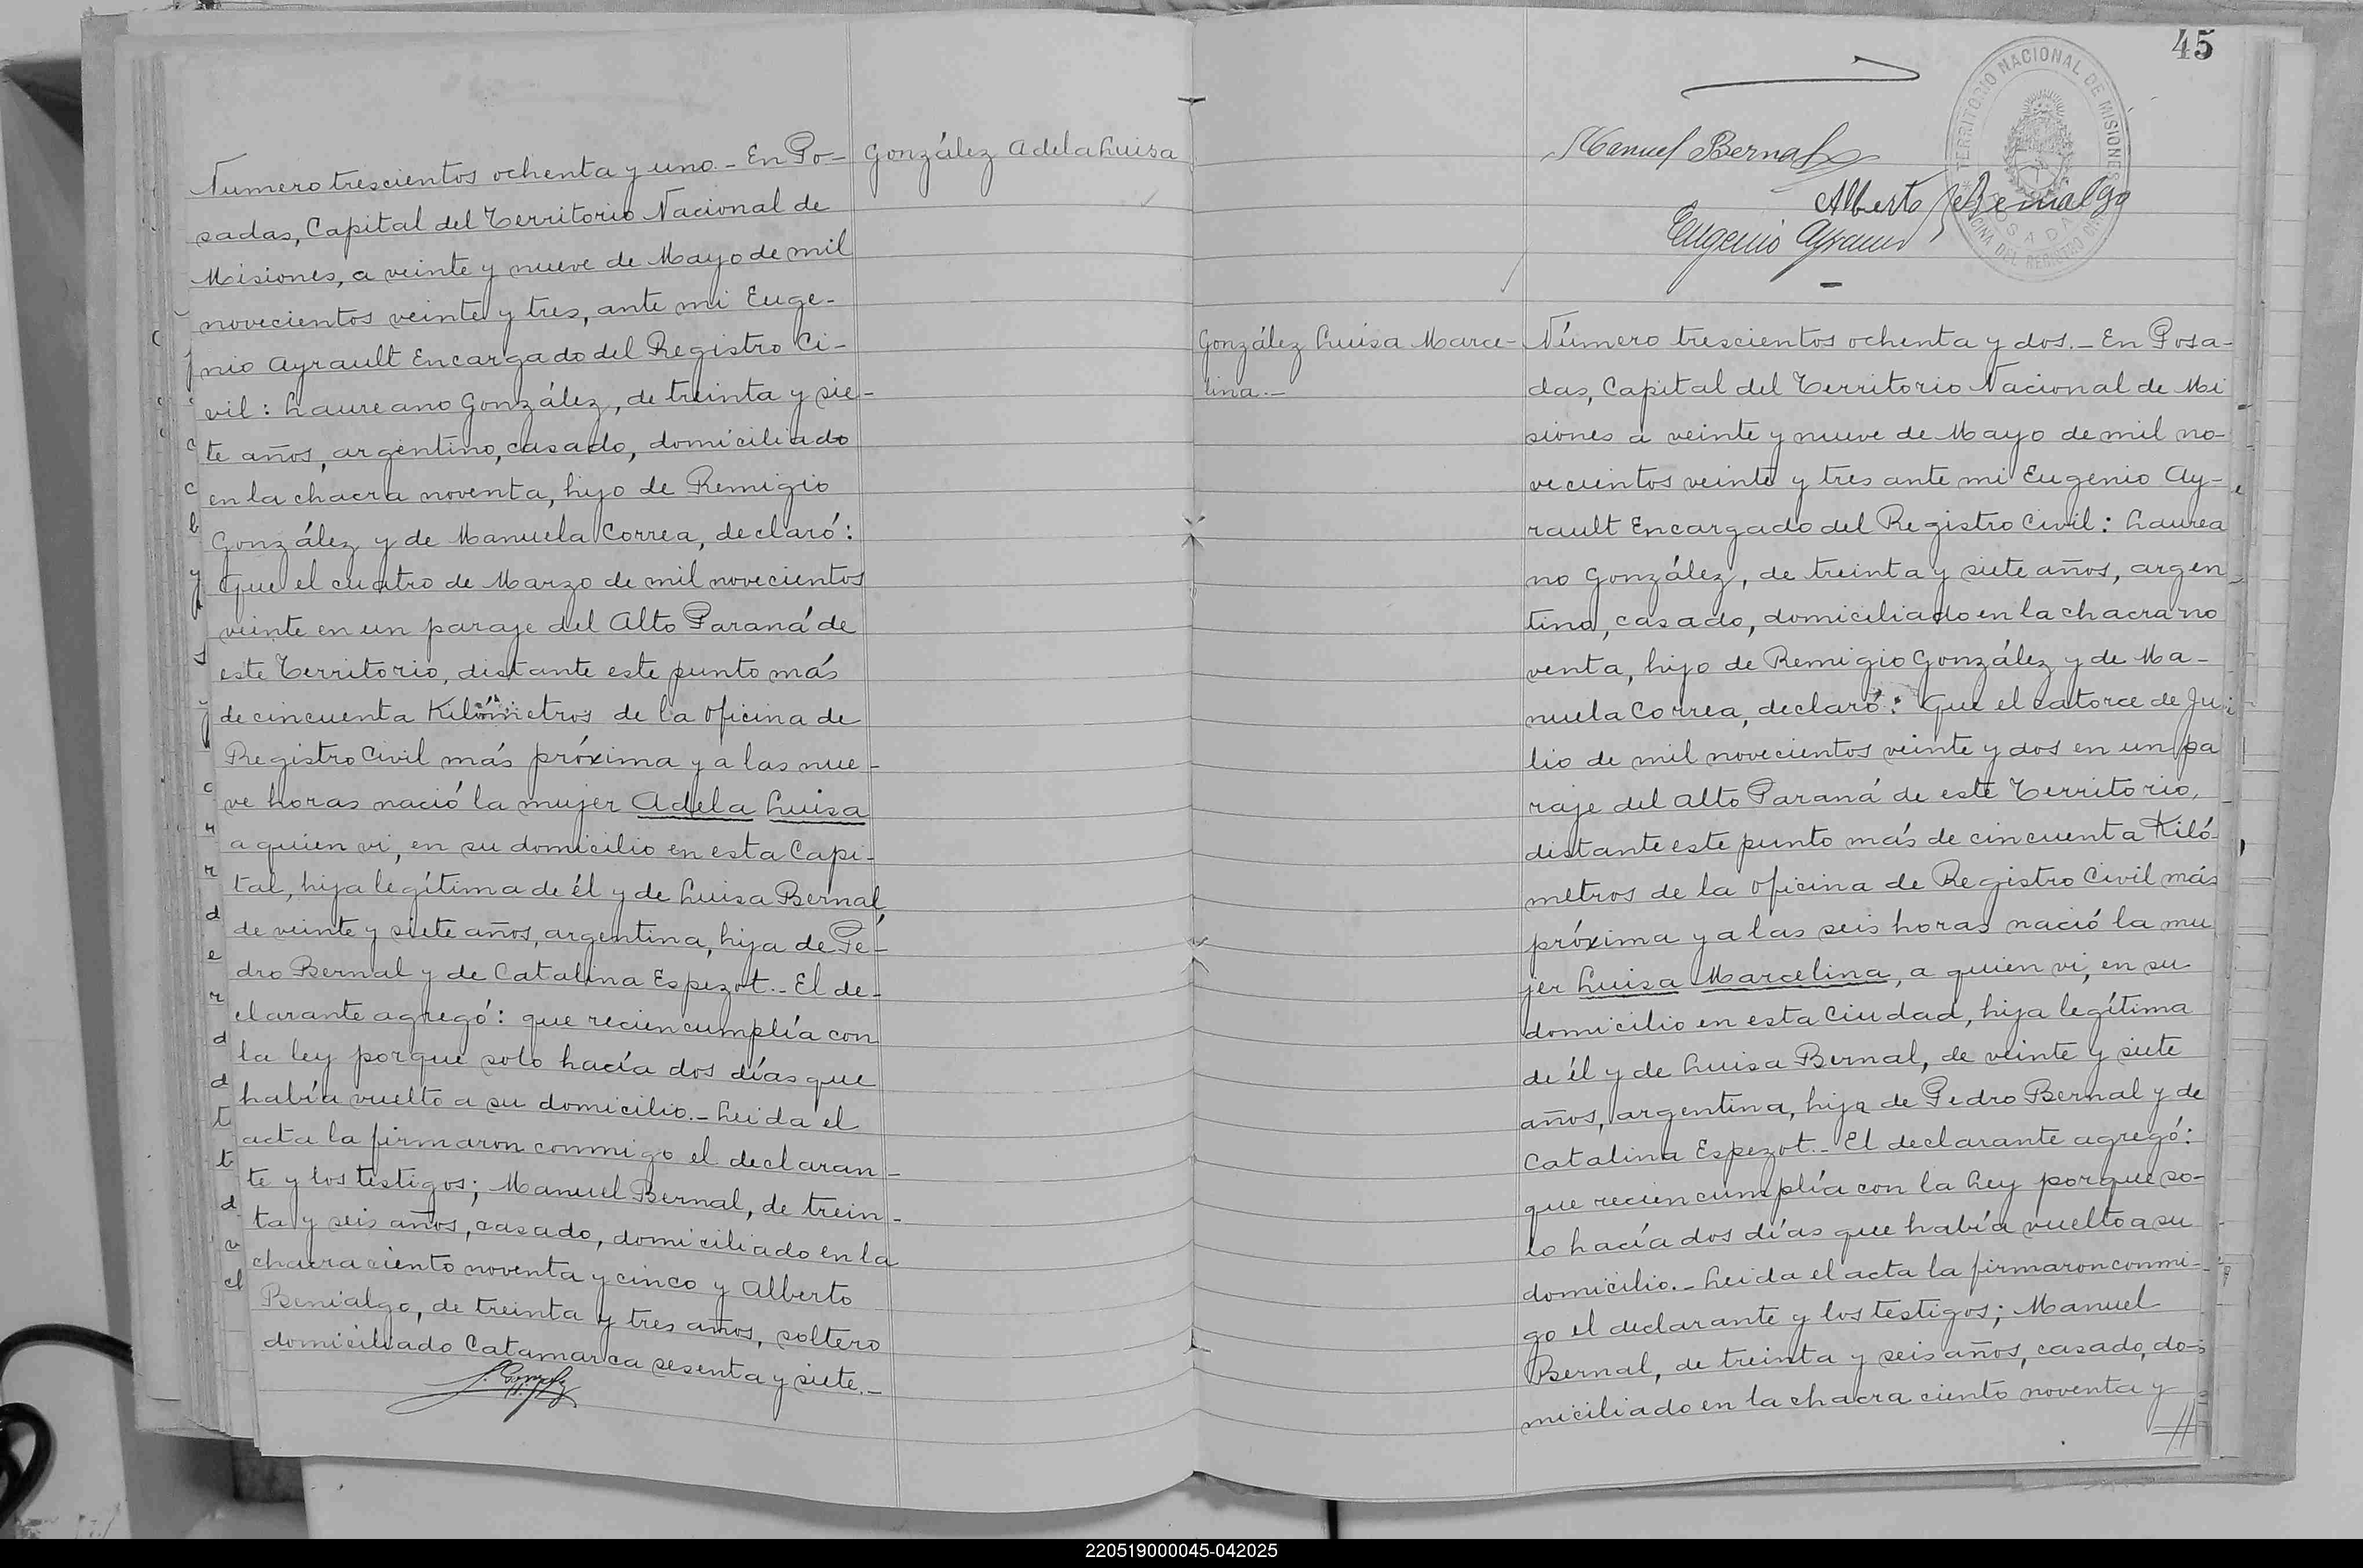 Numero trescientos ochenta y uno.- En Po-
sadas, Capital del Territorio Nacional de
Misiones, a veinte y nueve de Mayo de mil
novecientos veinte y tres, ante mi Euge-
nio Ayrault Encargado del Registro Ci-
vil: Laureano González, de treinta y sie-
te años, argentino, casado, domiciliado
en la chacra noventa, hijo de Remigio
González y de Manuela Correa, declaró:
Que el cuatro de Marzo de mil novecientos
veinte en un paraje del Alto Paraná de
este Territorio, distante este punto más
de cincuenta Kilómetros de la oficina de
Registro Civil más próxima y a las nue-
ve horas nació la mujer Adela Luisa
a quien vi, en su domicilio en esta Capi-
tal, hija legítima de él y de Luisa Bernal,
de veinte y siete años, argentina, hija de Pe-
dro Bernal y de Catalina Espezot.- El de-
clarante agregó: que recien cumplía con
la ley porque solo hacía dos días que
había vuelto a su domicilio.- Leida el
acta la firmaron conmigo el declaran-
te y los testigos; Manuel Bernal, de trein-
ta y seis años, casado, domiciliado en la
chacra ciento noventa y cinco y Alberto
Benialgo, de treinta y tres años, soltero
domiciliado Catamarca sesenta y siete.-
González Adela Luisa
45
TERRITORIO NACIONAL DE MISIONES
OFICINA DEL REGISTRO CIVIL
POSADAS
Manuel Bernal
Alberto Benialgo
Eugenio Ayrault
González Luisa Marce-
lina.-
Número trescientos ochenta y dos.- En Posa-
das, Capital del Territorio Nacional de Mi
siones a veinte y nueve de Mayo de mil no-
vecientos veinte y tres ante mi Eugenio Ay-
rault Encargado del Registro Civil: Laurea
no González, de treinta y siete años, argen
tino, casado, domiciliado en la chacra no
venta, hijo de Remigio González y de Ma-
nuela Correa, declaró: Que el catorce de Ju-
lio de mil novecientos veinte y dos en un pa
raje del Alto Paraná de este Territorio,
distante este punto más de cincuenta Kiló-
metros de la oficina de Registro Civil más
próxima y a las seis horas nació la mu
jer Luisa Marcelina, a quien vi, en su
domicilio en esta Ciudad, hija legítima
de él y de Luisa Bernal, de veinte y siete
años, argentina, hija de Pedro Bernal y de
Catalina Espezot.- El declarante agregó:
que recien cumplía con la Ley porque so-
lo hacía dos días que había vuelto a su
domicilio.- Leida el acta la firmaron conmi-
go el declarante y los testigos; Manuel
Bernal, de treinta y seis años, casado, do-
miciliado en la chacra ciento noventa y
220519000045-042025